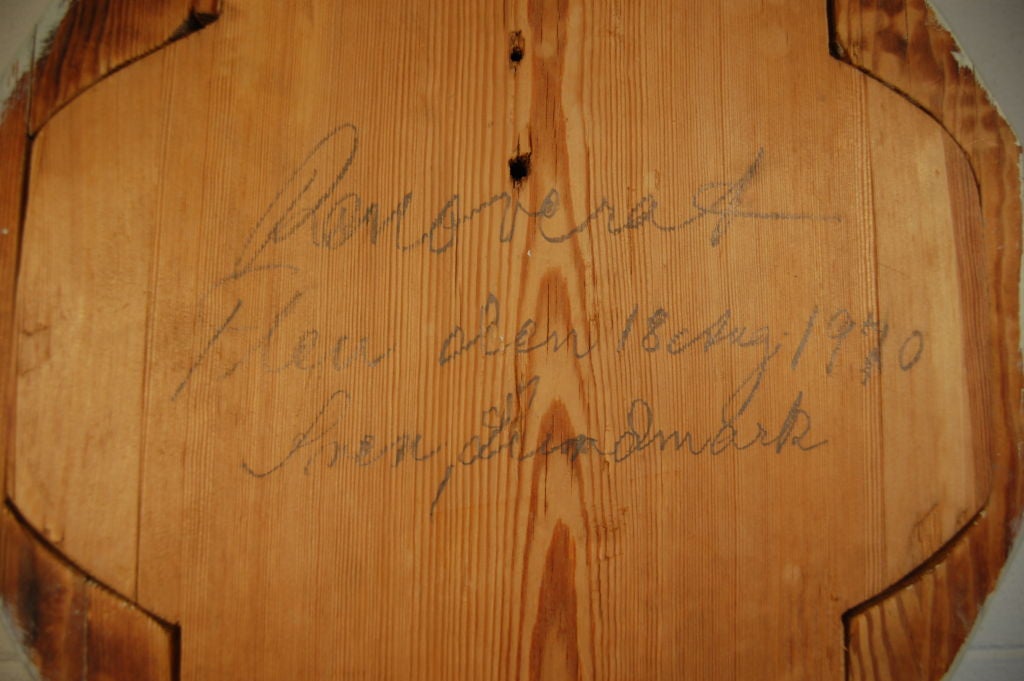 Renoverat
Flen den 18 Aug. 1970
Sven Lundmark